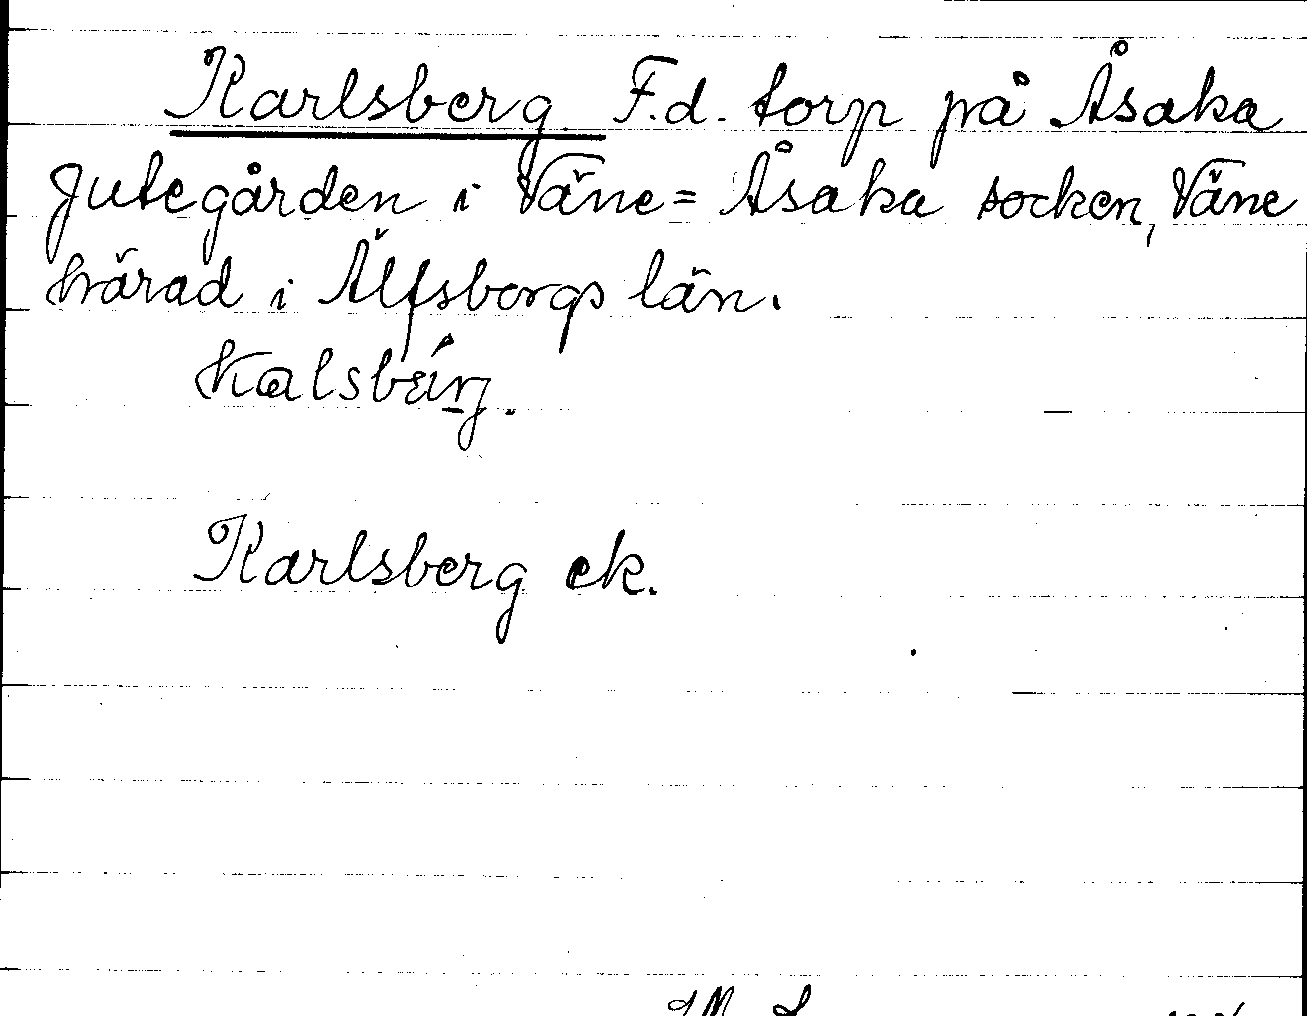 Karlsberg F.d. torp på Åsaka
Jutegården i Väne=Åsaka socken, Väne
härad i Älfsborgs län.
Karlsberg ek.